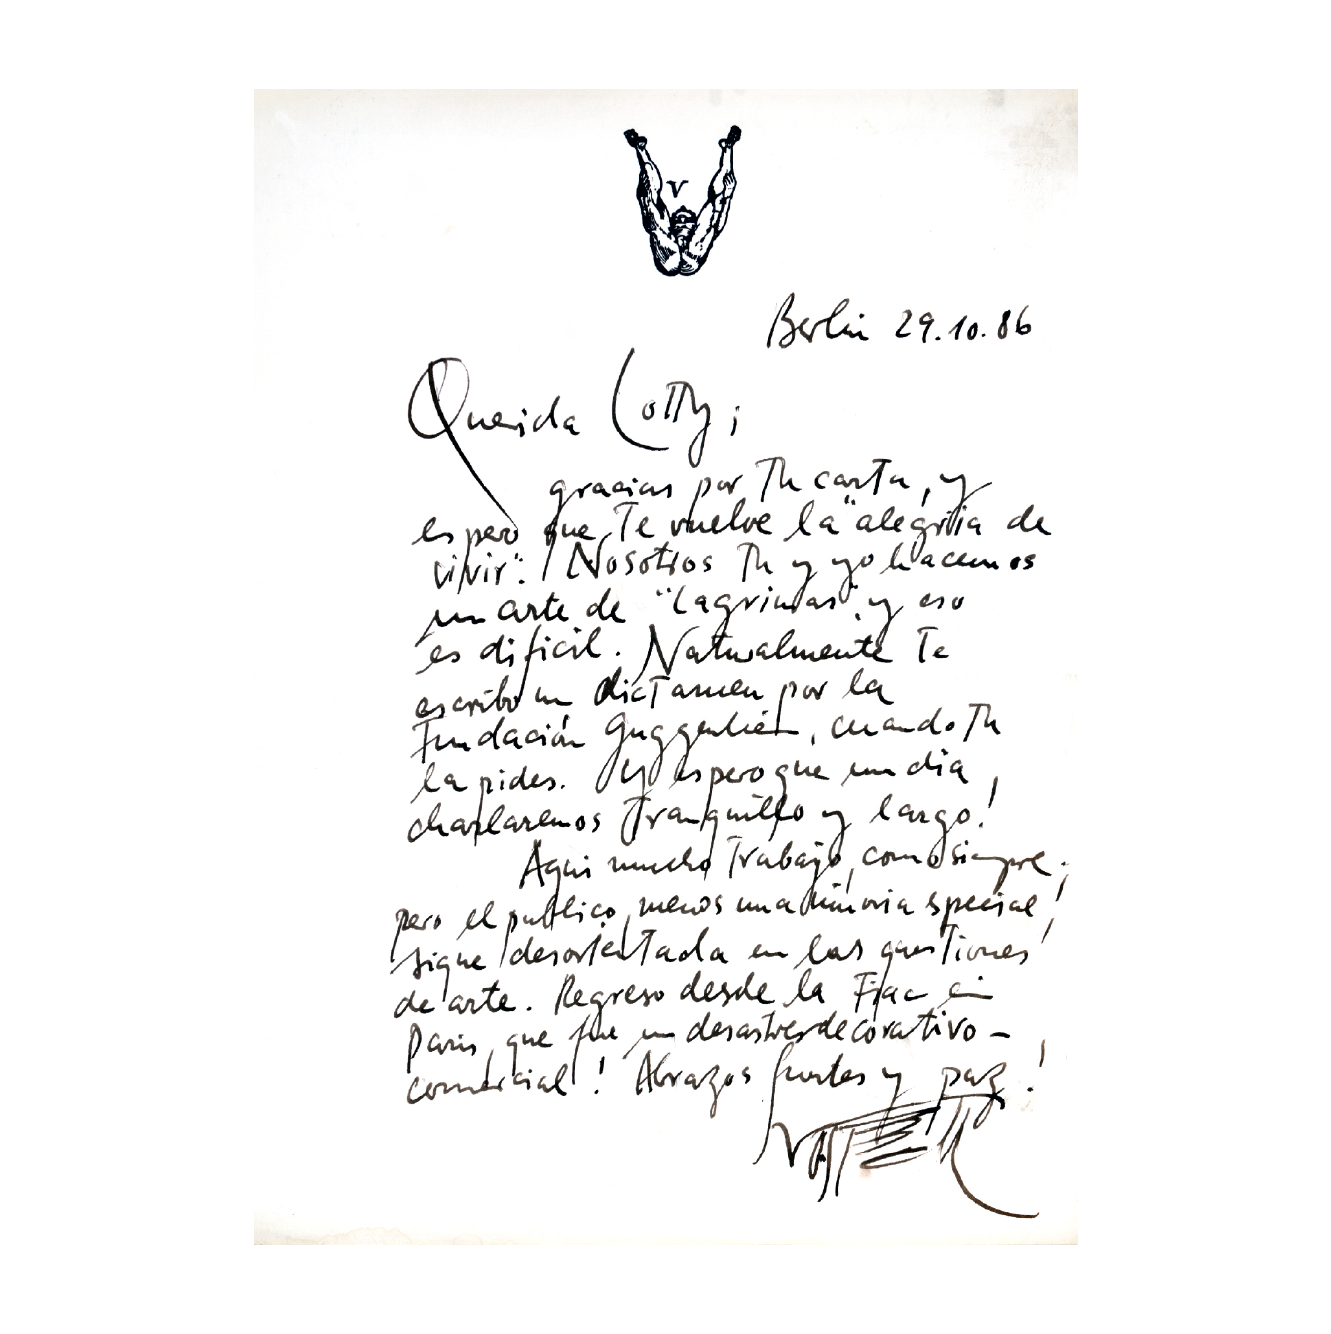 V
Berlin 29.10.86
Querida Lotty;
gracias por Tu carta, y
espero que Te vuelve la "alegria de
vivir". Nosotros Tu y yo hacemos
un arte de "Lagrimas" y eso
es dificil. Naturalmente Te
escribo un dictamen por la
Fundación Guggenheim, cuando Tu
la pides. Y espero que un dia
charlaremos Tranquillo y largo!
Aqui mucho Trabajo, como siempre.
pero el publico, menos una minoria special,
sigue desorientada en las questiones
de arte. Regreso desde la Fiac en
Paris, que fue un desastres decorativo -
comercial! Abrazos fuertes y paz!
Vostell